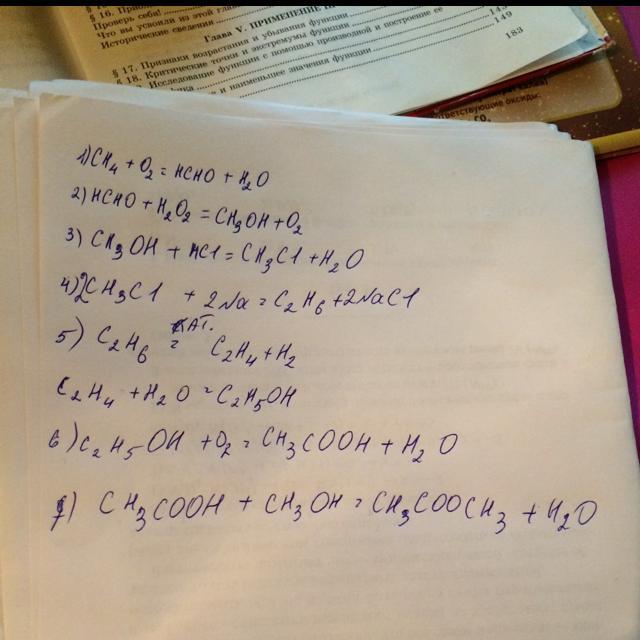 § 16. 
Проверь себя!
Что вы усвоили из этой
Исторические сведения
Глава V. ПРИМЕНЕНИЕ
§ 17. Признаки возрастания и убывания функции
§ 18. Критические точки и экстремумы функции
Исследование функции с помощью производной и построение ее
и наименьшее значения функции
149
183
ответствующие оксиды:
1) CH4 + O2 = HCHO + H2O
2) HCHO + H2O2 = CH3OH + O2
3) CH3OH + HCl = CH3Cl + H2O
4) 2CH3Cl + 2Na = C2H6 + 2NaCl
5) C2H6 кат. = C2H4 + H2
C2H4 + H2O = C2H5OH
6) C2H5OH + O2 = CH3COOH + H2O
7) CH3COOH + CH3OH = CH3COOCH3 + H2O